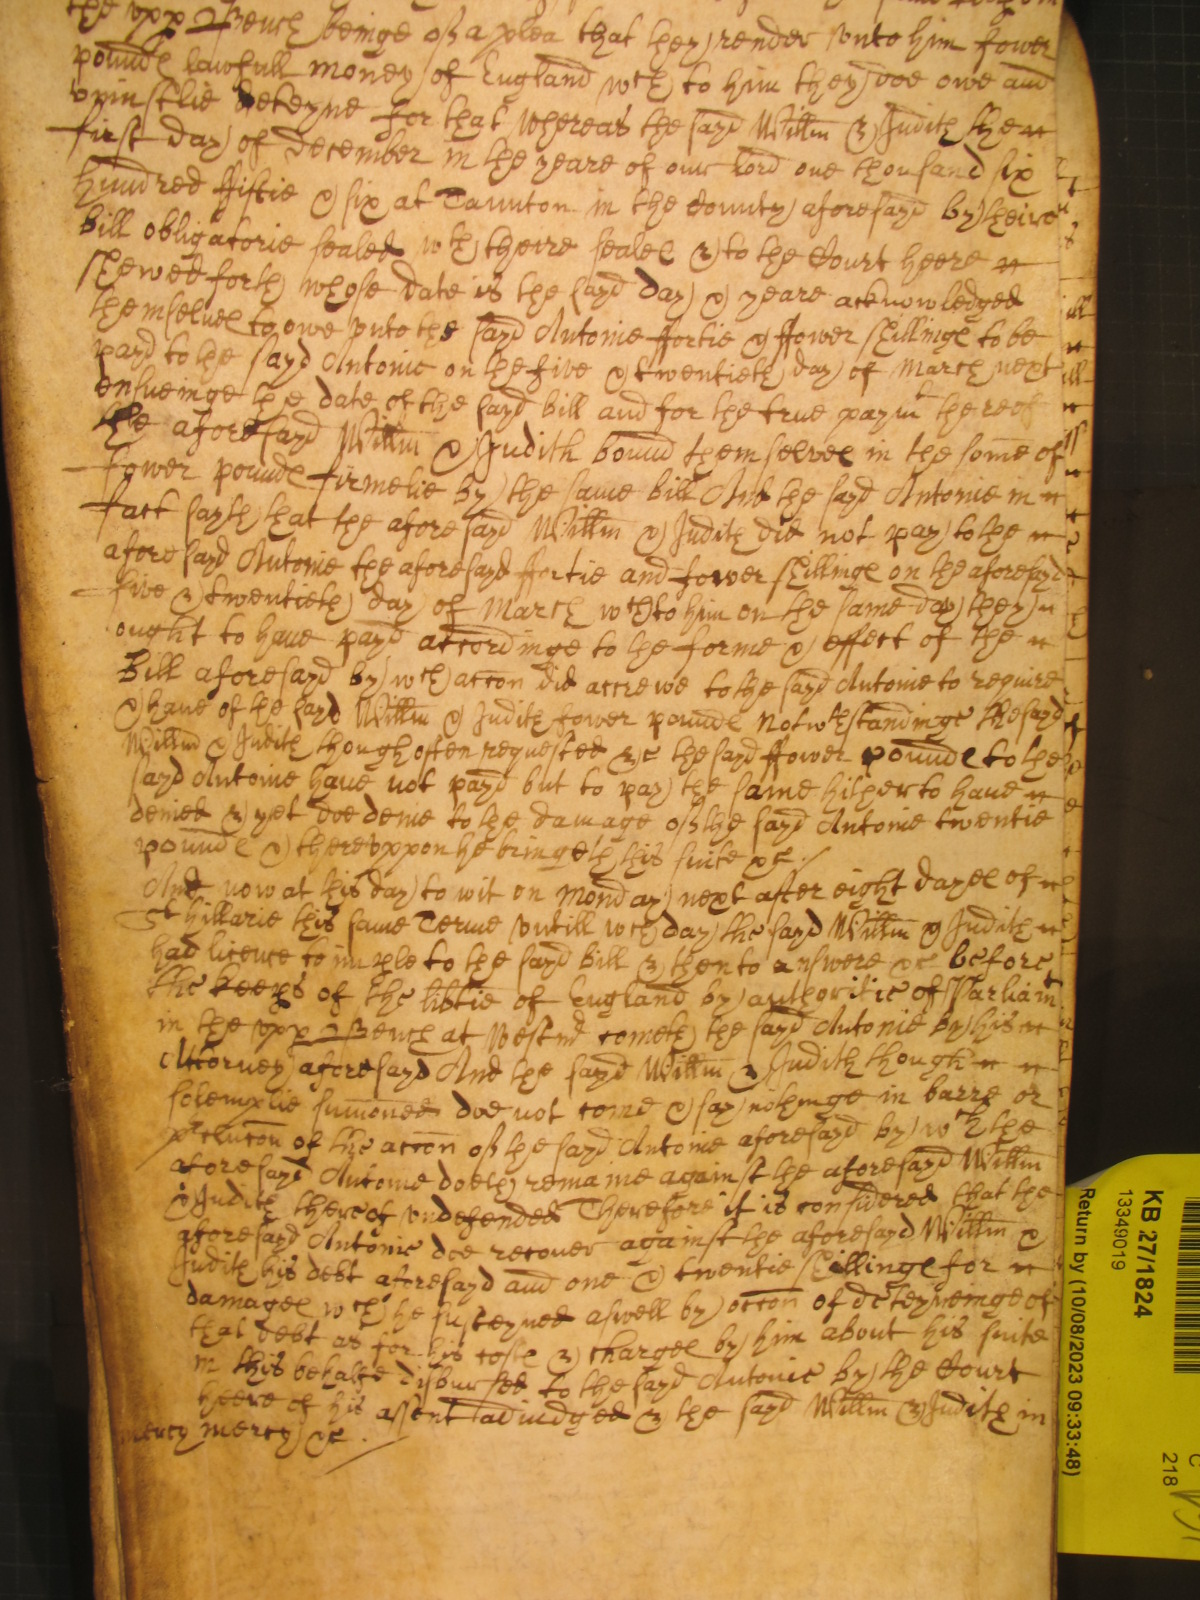 the upp Bench beinge of a plea that they render unto him fower
pounds lawfull money of England wch to him they doe owe and
uniustlie deteyne for that whereas the sayd Willm & Judith the
first day of december in the yeare of our lord one thousand six
hundred fiftie & six at Taunton in the County aforesayd by theire
bill obligatorie sealed wth theire seales & to the Court heere
shewed forth whose date is the sayd day & yeare acknowledged
themselves to owe unto the sayd Antonie ffortie & ffower shillings to be
payd to the sayd Antonie on the five & twentieth day of March next
ensueinge the date of the sayd bill and for the true paymt thereof
the aforesayd Willm & Judith bound themselves in the some of
fower pounds firmelie by the same bill And the sayd Antonie in
fact sayth that the aforesayd Willm & Judith did not pay to the
aforesayd Antonie the aforesayd ffortie and fower shillings on the aforesayd
five & twentieth day of March wch to him on the same day they
ought to have payd accordinge to the forme & effect of the
Bill aforesayd by wch accon did accrewe to the sayd Antonie to require
& have of the sayd Willm & Judith fower pounds Notwthstandinge the sayd
Willm & Judith though often requested &c the sayd ffower pounds to the
sayd Antonie have not payd but to pay the same hitherto have
denied & yet doe denie to the damage of the sayd Antonie twentie
pounds & thereuppon he bringeth his suite &c.
And now at this day to wit on Monday next after eight dayes of
St hillarie this same Terme untill wch day the sayd Willm & Judith
had licence to imple to the sayd bill & then to answere &c before
the keeps of the libtie of England by authoritie of Parliamt
in the upp Bench at Westmr cometh the sayd Antonie by his
Attorney aforesayd And the sayd Willm & Judith though
solemplie sumoned doe not come & say nothinge in barre or
preclucon of the accon of the sayd Antonie aforesayd by wch the
aforesayd Antonie doeth remaine against the aforesayd Willm
& Judith thereof undefended Therefore it is considered that the
aforesayd Antonie doe recover against the aforesayd Willm &
Judith his debt aforesayd and one & twentie shillings for
damages wch he susteyned aswell by occon of deteyneinge of
that debt as for his costs & charges by him about his suite
in this behalfe disbursed to the sayd Antonie by the Court
heere of his assent adiudged & the sayd Willm & Judith in
mercy mercy &c.
KB 27/1824
13349019
Return by (10/08/2023 09:33:48)
218